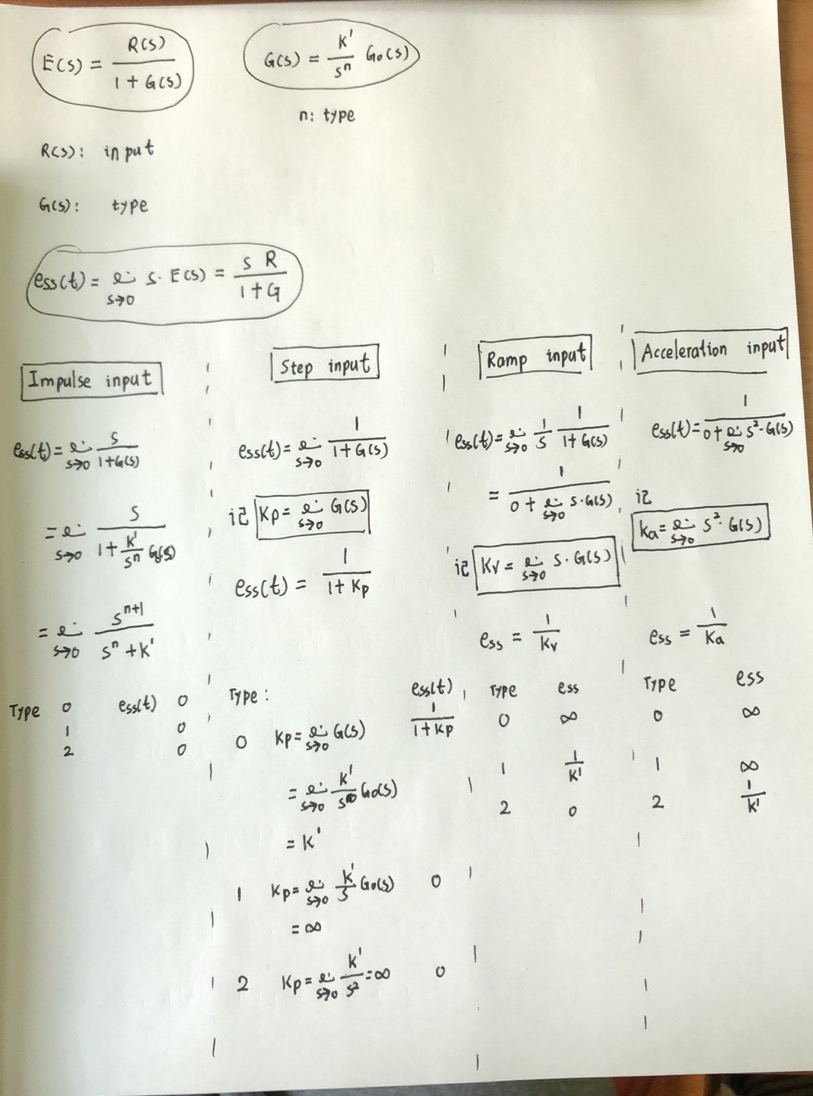 E(s) = R(s) / (1 + G(s))
G(s) = K' / sⁿ G₀(s)
n: type
R(s): input
G(s): type
ess(t) = lim s→0 s· E(s) = s R / (1 + G)
Impulse input
ess(t) = lim s→0 s / (1+G(s))
= lim s→0 s / (1 + K'/sⁿ G₀(s))
= lim s→0 sⁿ⁺¹ / (sⁿ + K')
Type 0 ess(t) 0
1 0
2 0
Step input
ess(t) = lim s→0 1 / (1 + G(s))
记 Kp = lim s→0 G(s)
ess(t) = 1 / (1 + Kp)
Type: ess(t)
0 Kp = lim s→0 G(s) 1 / (1 + Kp)
= lim s→0 K' / s⁰ G₀(s)
= K'
1 Kp = lim s→0 K' / s G₀(s) 0
= ∞
2 Kp = lim s→0 K' / s² = ∞ 0
Ramp input
ess(t) = lim s→0 1/s 1 / (1 + G(s))
= 1 / (0 + lim s→0 s·G(s))
记 Kv = lim s→0 s·G(s)
ess = 1 / Kv
Type ess
0 ∞
1 1/K'
2 0
Acceleration input
ess(t) = 1 / (0 + lim s→0 s²·G(s))
记
Ka = lim s→0 s²·G(s)
ess = 1 / Ka
Type ess
0 ∞
1 ∞
2 1/K'